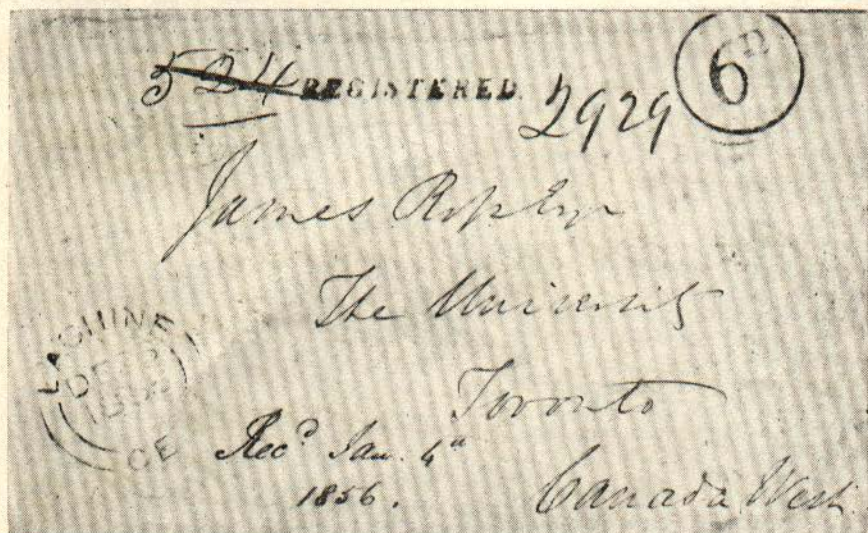 524 REGISTERED. 2929 6D
James
The University
Toronto
Canada West
LACHINE
DE
CE
Recd Jan. 4th
1856.